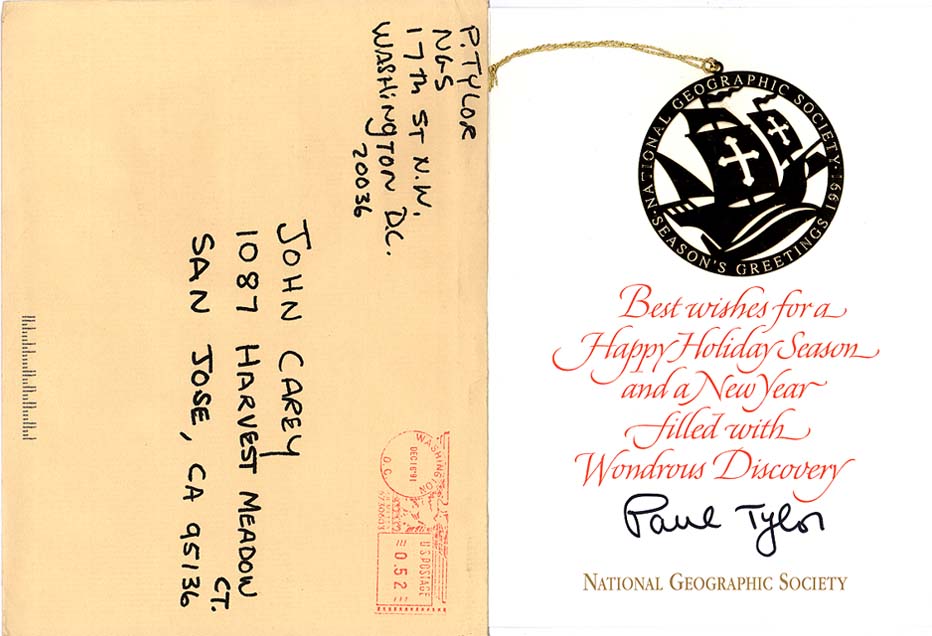 P. TYLOR
NGS
17th ST N.W.
WASHINGTON D.C.
20036
JOHN CAREY
1087 HARVEST MEADOW
CT.
SAN JOSE, CA 95136
WASHINGTON
D.C.
DEC18'91
U.S.POSTAGE
0.52
NATIONAL GEOGRAPHIC SOCIETY·1991
·SEASON'S GREETINGS·
Best wishes for a
Happy Holiday Season
and a New Year
filled with
Wondrous Discovery
Paul Tylor
NATIONAL GEOGRAPHIC SOCIETY